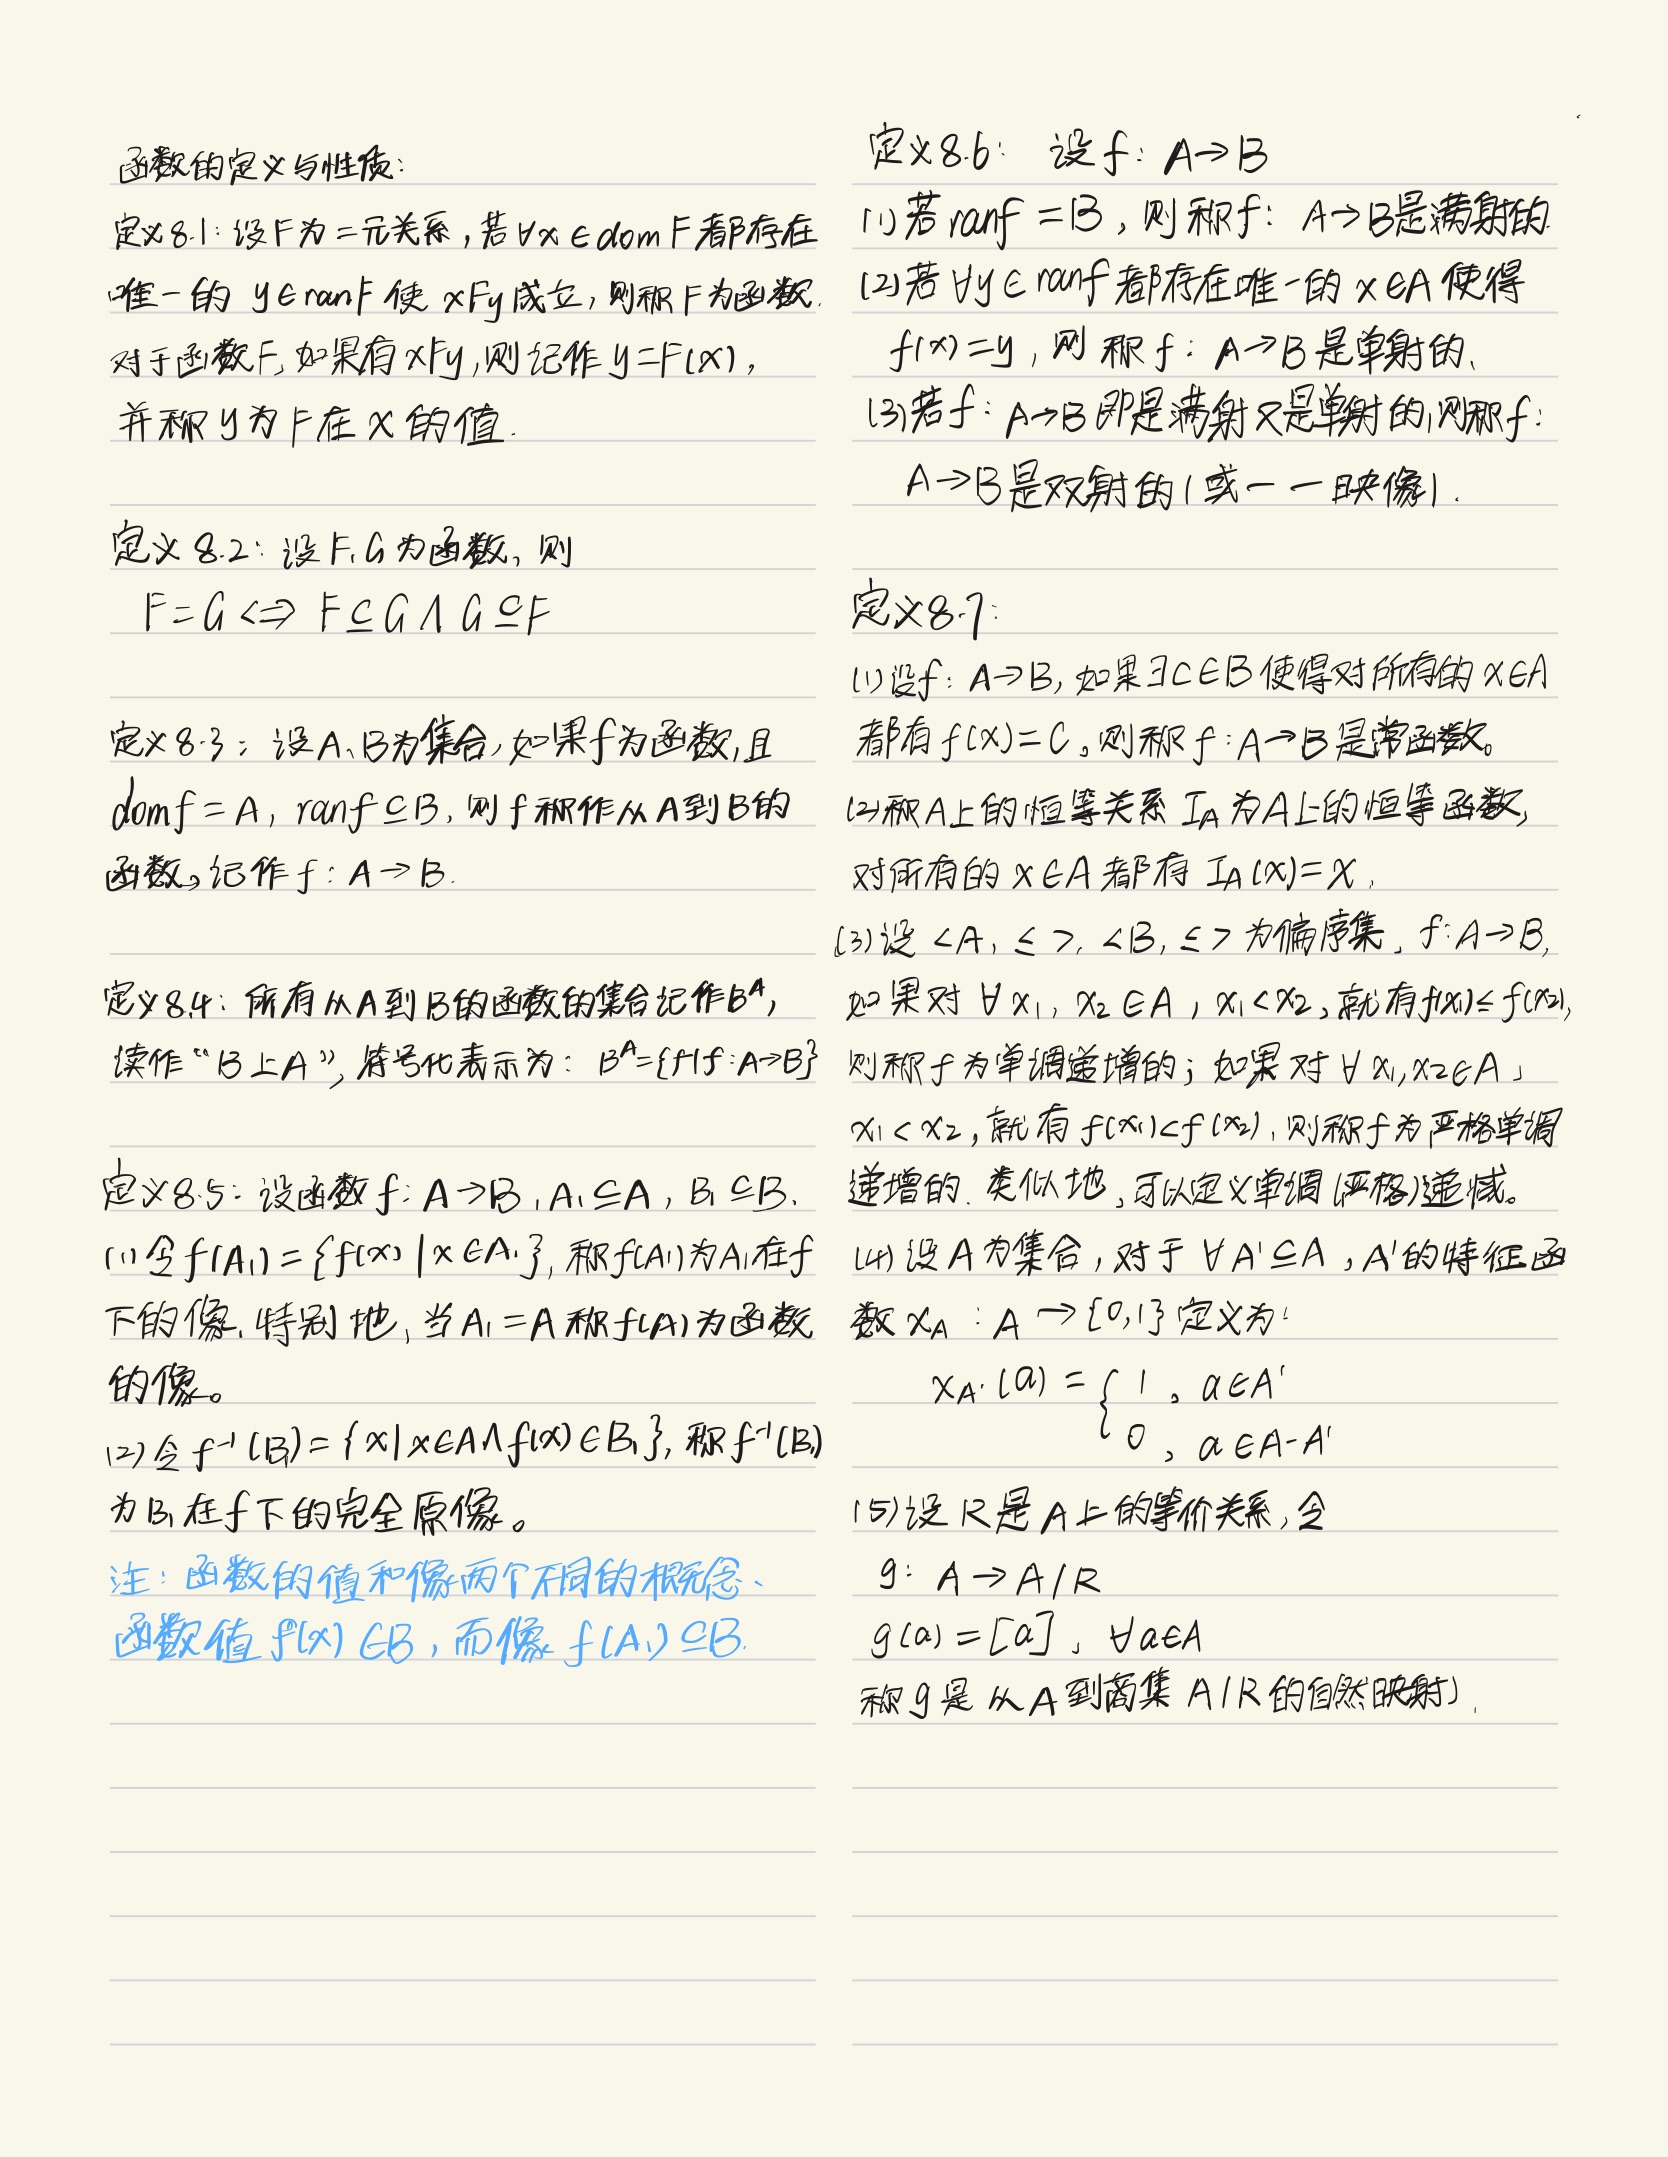 函数的定义与性质:
定义8.1: 设F为二元关系, 若∀x∈domF都存在
唯一的 y∈ranF 使 xFy成立, 则称F为函数.
对于函数F, 如果有xFy, 则记作y=F(x),
并称y为F在x的值.
定义8.2: 设F、G为函数, 则
F=G<=>F⊆G∧G⊆F
定义8.3: 设A、B为集合, 如果f为函数, 且
domf=A, ranf⊆B, 则f称作从A到B的
函数。记作f: A→B.
定义8.4: 所有从A到B的函数的集合记作Bᴬ,
读作“B上A”, 符号化表示为: Bᴬ={f|f:A→B}
定义8.5: 设函数f: A→B, A₁⊆A, B₁⊆B.
(1)令f(A₁)={f(x)|x∈A₁}, 称f(A₁)为A₁在f
下的像. 特别地, 当A₁=A称f(A)为函数
的像。
(2)令f⁻¹(B₁)={x|x∈A∧f(x)∈B₁}, 称f⁻¹(B₁)
为B₁在f下的完全原像。
注: 函数的值和像两个不同的概念、
函数值f(x)∈B, 而像f(A₁)⊆B.
定义8.6: 设f: A→B
(1)若ranf=B, 则称f: A→B是满射的.
(2)若∀y∈ranf都存在唯一的x∈A使得
f(x)=y, 则称f: A→B是单射的、
(3)若f: A→B即是满射又是单射的, 则称f:
A→B是双射的(或一一映像).
定义8.7:
(1)设f: A→B, 如果∃C∈B使得对所有的x∈A
都有f(x)=C。则称f:A→B是常函数。
(2)称A上的恒等关系I_A为A上的恒等函数,
对所有的x∈A都有I_A(x)=x.
(3)设<A, ≤>, <B, ≤>为偏序集, f:A→B,
如果对∀x₁, x₂∈A, x₁<x₂, 就有f(x₁)≤f(x₂),
则称f为单调递增的; 如果对∀x₁,x₂∈A,
x₁<x₂, 就有f(x₁)<f(x₂), 则称f为严格单调
递增的. 类似地, 可以定义单调(严格)递减。
(4)设A为集合, 对于∀A'⊆A, A'的特征函
数x_A : A→{0,1}定义为:
x_A'(a)={1, a∈A'
0, a∈A-A'
(5)设R是A上的等价关系, 令
g: A→A/R
g(a)=[a], ∀a∈A
称g是从A到商集A/R的自然映射).